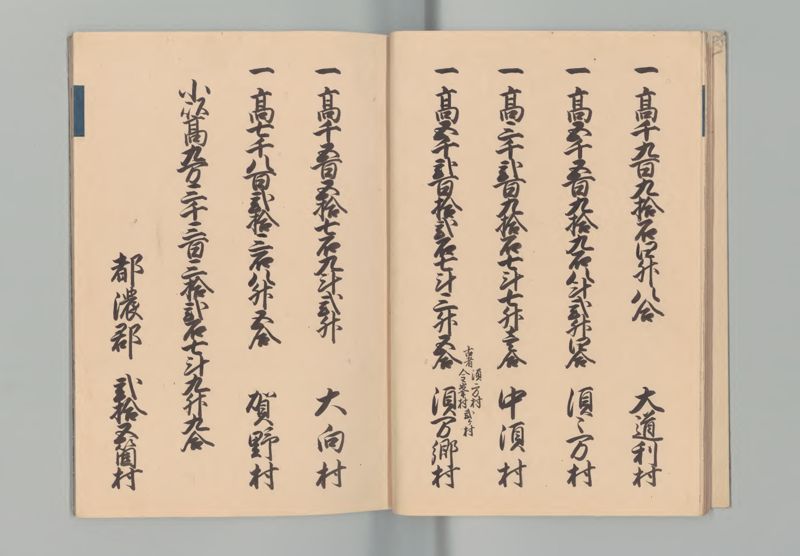 一 高千九百九拾石四升八合 大道利村
一 高五千五百九拾九石八斗弐升四合 須々万村
一 高二千弐百九拾石七斗七升三合 中須村
一 高五千弐百拾弐石七斗二升五合 須万郷村
古者須万村
弐ヶ村
一 高千五百五拾七石九斗弐升 大向村
一 高七千八百弐拾二石八升五合 賀野村
小以高九万二千三百二拾弐石七斗九升九合
都濃郡 弐拾五箇村